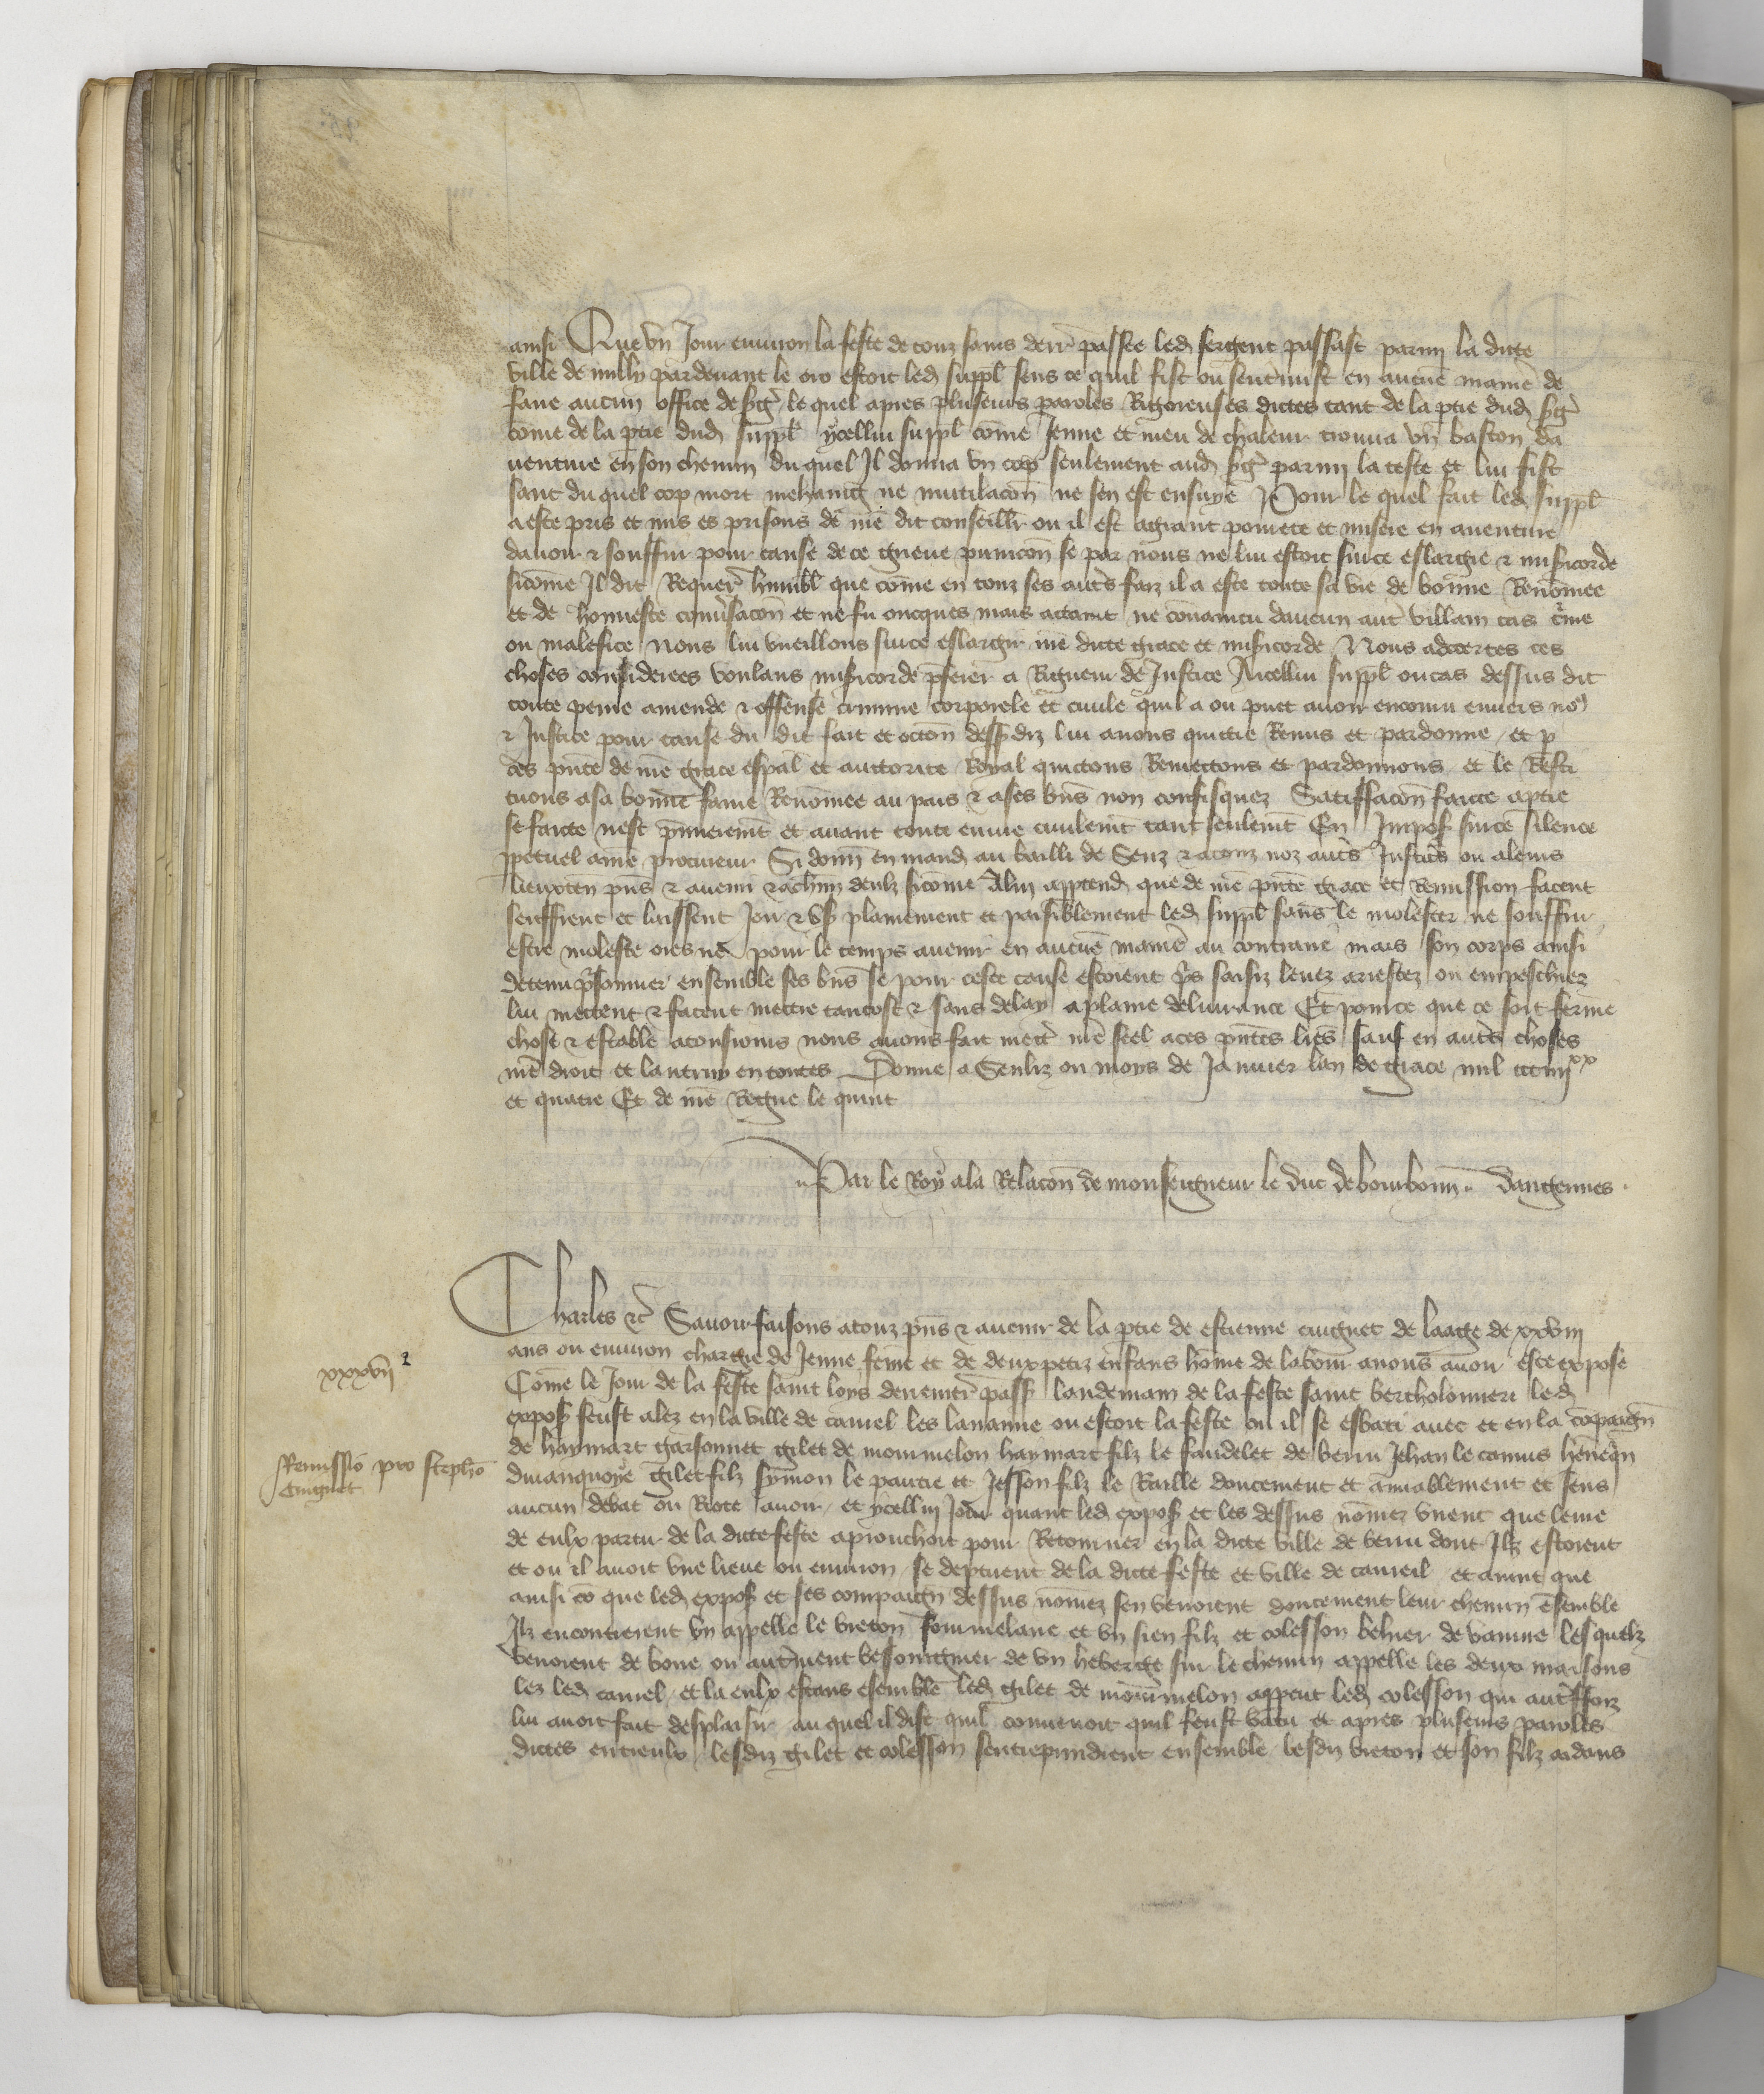 ainsi Que vn Jour enuiron la feste de touz sains derr passee led sergent passast parmy la dicte
ville de milly pardeuant le ou estoit led suppl sens ce quil fist ou sentrmist en aucune maniere de
faire aucun office de sergt le quel apres pluseurs paroles Rigoreuses dictes tant de la ptie dud sergt
come de la ptie dud suppl ycellui suppl come Jenne et meu de chaleur trouua vn baston da
uenture en son chemin du quel Il donna vn cop seulement aud sergt parmy la teste et lui fist
sanc du quel cop mort mehaing ne mutilacon ne sen est ensuye Pour le quel fait led suppl
a este pris et mis es prisons de nre dit conseillr ou il est a grant pourete et misere en auenture
dauoir & souffrir pour cause de ce grieue punicon se par nous ne lui estoit sur ce eslargie & misicorde
sicome Il dit Requer humbl que come en touz ses autrs faiz il a este toute sa vie de bonne Renomee
et de honneste conusacon et ne fu oncques mais actaint ne conuaincu daucun autr villain cas crime
ou malefice nous lui vueillons sur ce eslargir nre dicte grace et misicorde Nous adcertes ces
choses considerees voulans misicorde pferer a Rigueur de Justice A icellui suppl ou cas dessus dit
toute peine amende & offense crimine corporele et ciuile quil a ou puet auoir encouru enuers nous
& Justice pour cause du dit fait et occon dess diz lui auons quictie Remis et pardonne et p
ces pntes de nre grace espal et auctorite Royal quictons Remettons et pardonnons et le Resti
tuons a sa bonne fame Renomee au pais & a ses bns non confisquez Satisfacon faicte a ptie
se faicte nest pmierement et auant toute euure ciuilement tant seulemt En Impos sur ce silence
ppetuel a nre procureur Si donn en mand au bailli de Senz & a touz noz autrs Justicrs ou a leurs
lieuxten pns & auenir & a chun deulz sicome A lui apptend que de nre pnte grace et Remission facent
seuffrent et laissent Jour & vs plainement et paisiblement led suppl sans le molester ne souffrir
estre moleste ores ne pour le temps auenir en aucune maniere au contraire mais son corps ainsi
detenu prsonnier ensemble ses bns se pour ceste cause estoient prs saisiz leuez arrestez ou empeschiez
lui mettent & facent mettre tantost & sans delay a plaine deliurance Et pour ce que ce soit ferme
chose & estable a tousiours nous auons fait mettr nre seel a ces pntes lres sauf en autrs choses
nre droit et lautruy en toutes Donne a Senliz ou moys de Januier lan de grace mil ccc iiij xx
et quatre Et de nre Regne le quint
Par le Roy a la Relacon de monseigneur le duc de bourbonn dangennes
Charles &c Sauoir faisons a touz pns & auenir de la ptie de estienne cuignet de laage de xxviii
ans ou enuiron chargie de Jenne feme et de deux petiz enfans home de labour a nous auoir este expose
Come le Jour de la feste saint loys derrenierr pass landemain de la feste saint bertholomieu led
expos feust alez en la ville de caurel les lananne ou estoit la feste ou il se esbati auec et en la copaign
de haymart garsonnet gilet de mourmelon haymart filz le faudelet de beru Jehan le camus heneqn
dmanquoye gilet filz symon le pautre et Jesson filz le Raille doucement et amiablement et sens
aucun debat ou Riote auoir et ycellui Jour quant led expos et les dessus nomez virent que leure
de eulx partir de la dicte feste aprouchoit pour Retourner en la dicte ville de beru dont Ilz estoient
et ou il auoit vne lieue ou enuiron se deptirent de la dicte feste et ville de caureil et auint que
ainsi co que led expos et ses compaign dessus nomez sen venoient doucement leur chemin esemble
Ilz encontrerent vn appelle le breton fourmelane et vn sien filz et colesson belner de vanine lesquelz
venoient de boire ou autrment besoingnier de vn heberge sur le chemin appelle les deux maisons
lez led caurel et la eulx estans esemble led gilet de mourmelon appcut led colesson qui autrffoiz
lui auoit fait desplaisir au quel il dist quil conuenoit quil feust batu et apres pluseurs paroles
dictes entreulx lesdiz gilet et colesson sentreprindrent ensemble lesdiz breton et son filz aidans
xxxvii
Remissio pro stepho
Cuignet